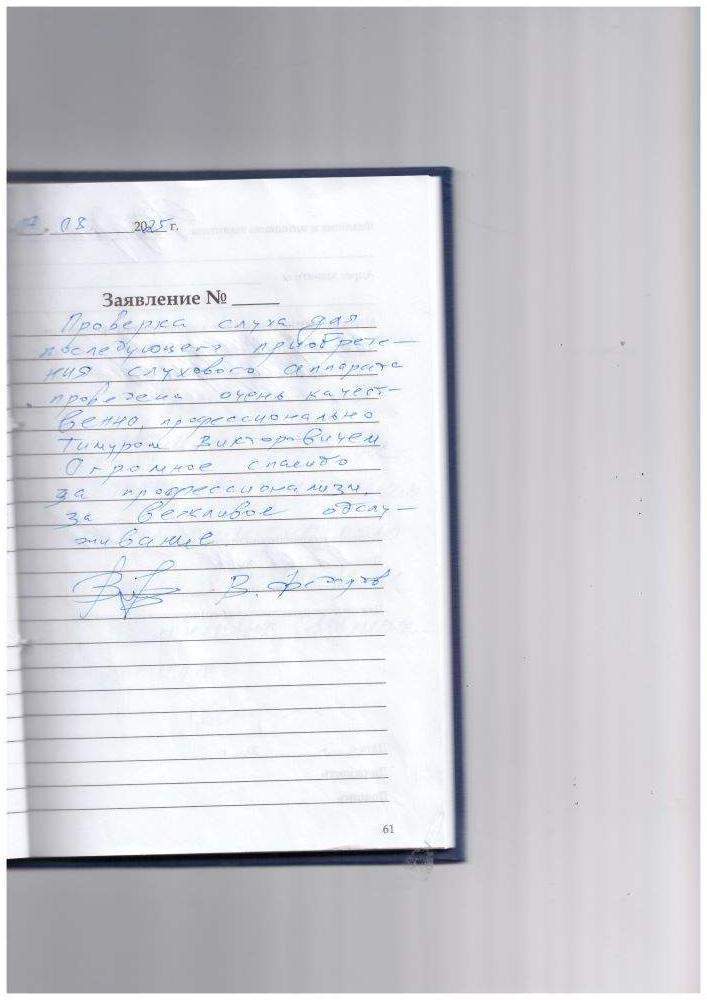 7. 03 2025 г.
Заявление №
Проверка слуха для
последующего приобрете-
ния слухового аппарата
проведена очень качест-
венно, профессионально
Тимуром Викторовичем
Огромное спасибо
за профессионализм,
за вежливое обслу-
живание
В.
61